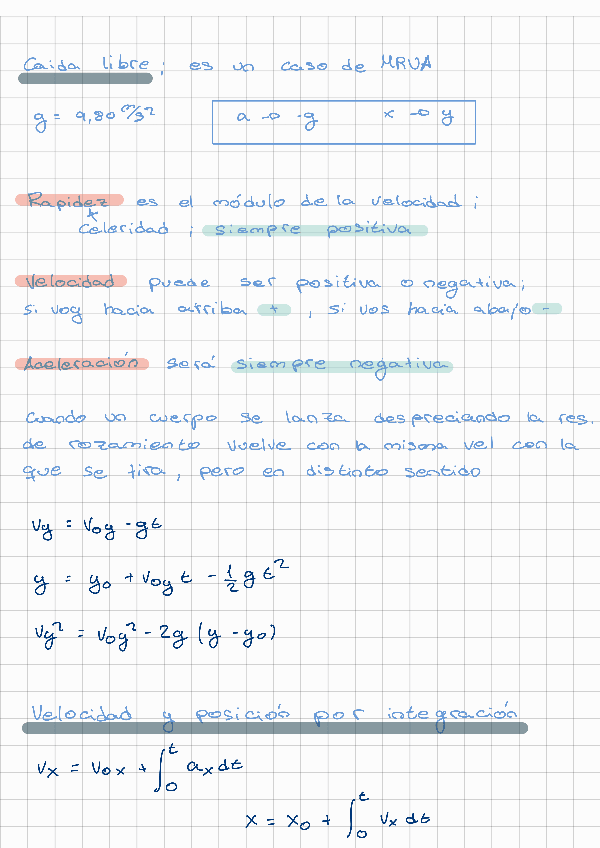 Caida libre; es un caso de MRUA
g = 9,80 m/s²
a → -g    x → y
Rapidez es el módulo de la velocidad;
Celeridad; siempre positiva
Velocidad puede ser positiva o negativa;
si voy hacia arriba +, si vos hacia abajo -
Aceleración será siempre negativa
Cuando un cuerpo se lanza despreciando la res.
de rozamiento vuelve con la misma vel con la
que se tira, pero en distinto sentido
vy = v₀y - gt
y = y₀ + v₀y t - 1/2 g t²
vy² = v₀y² - 2g (y - y₀)
Velocidad y posición por integración
vx = v₀x + ∫₀ᵗ ax dt
x = x₀ + ∫₀ᵗ vx dt